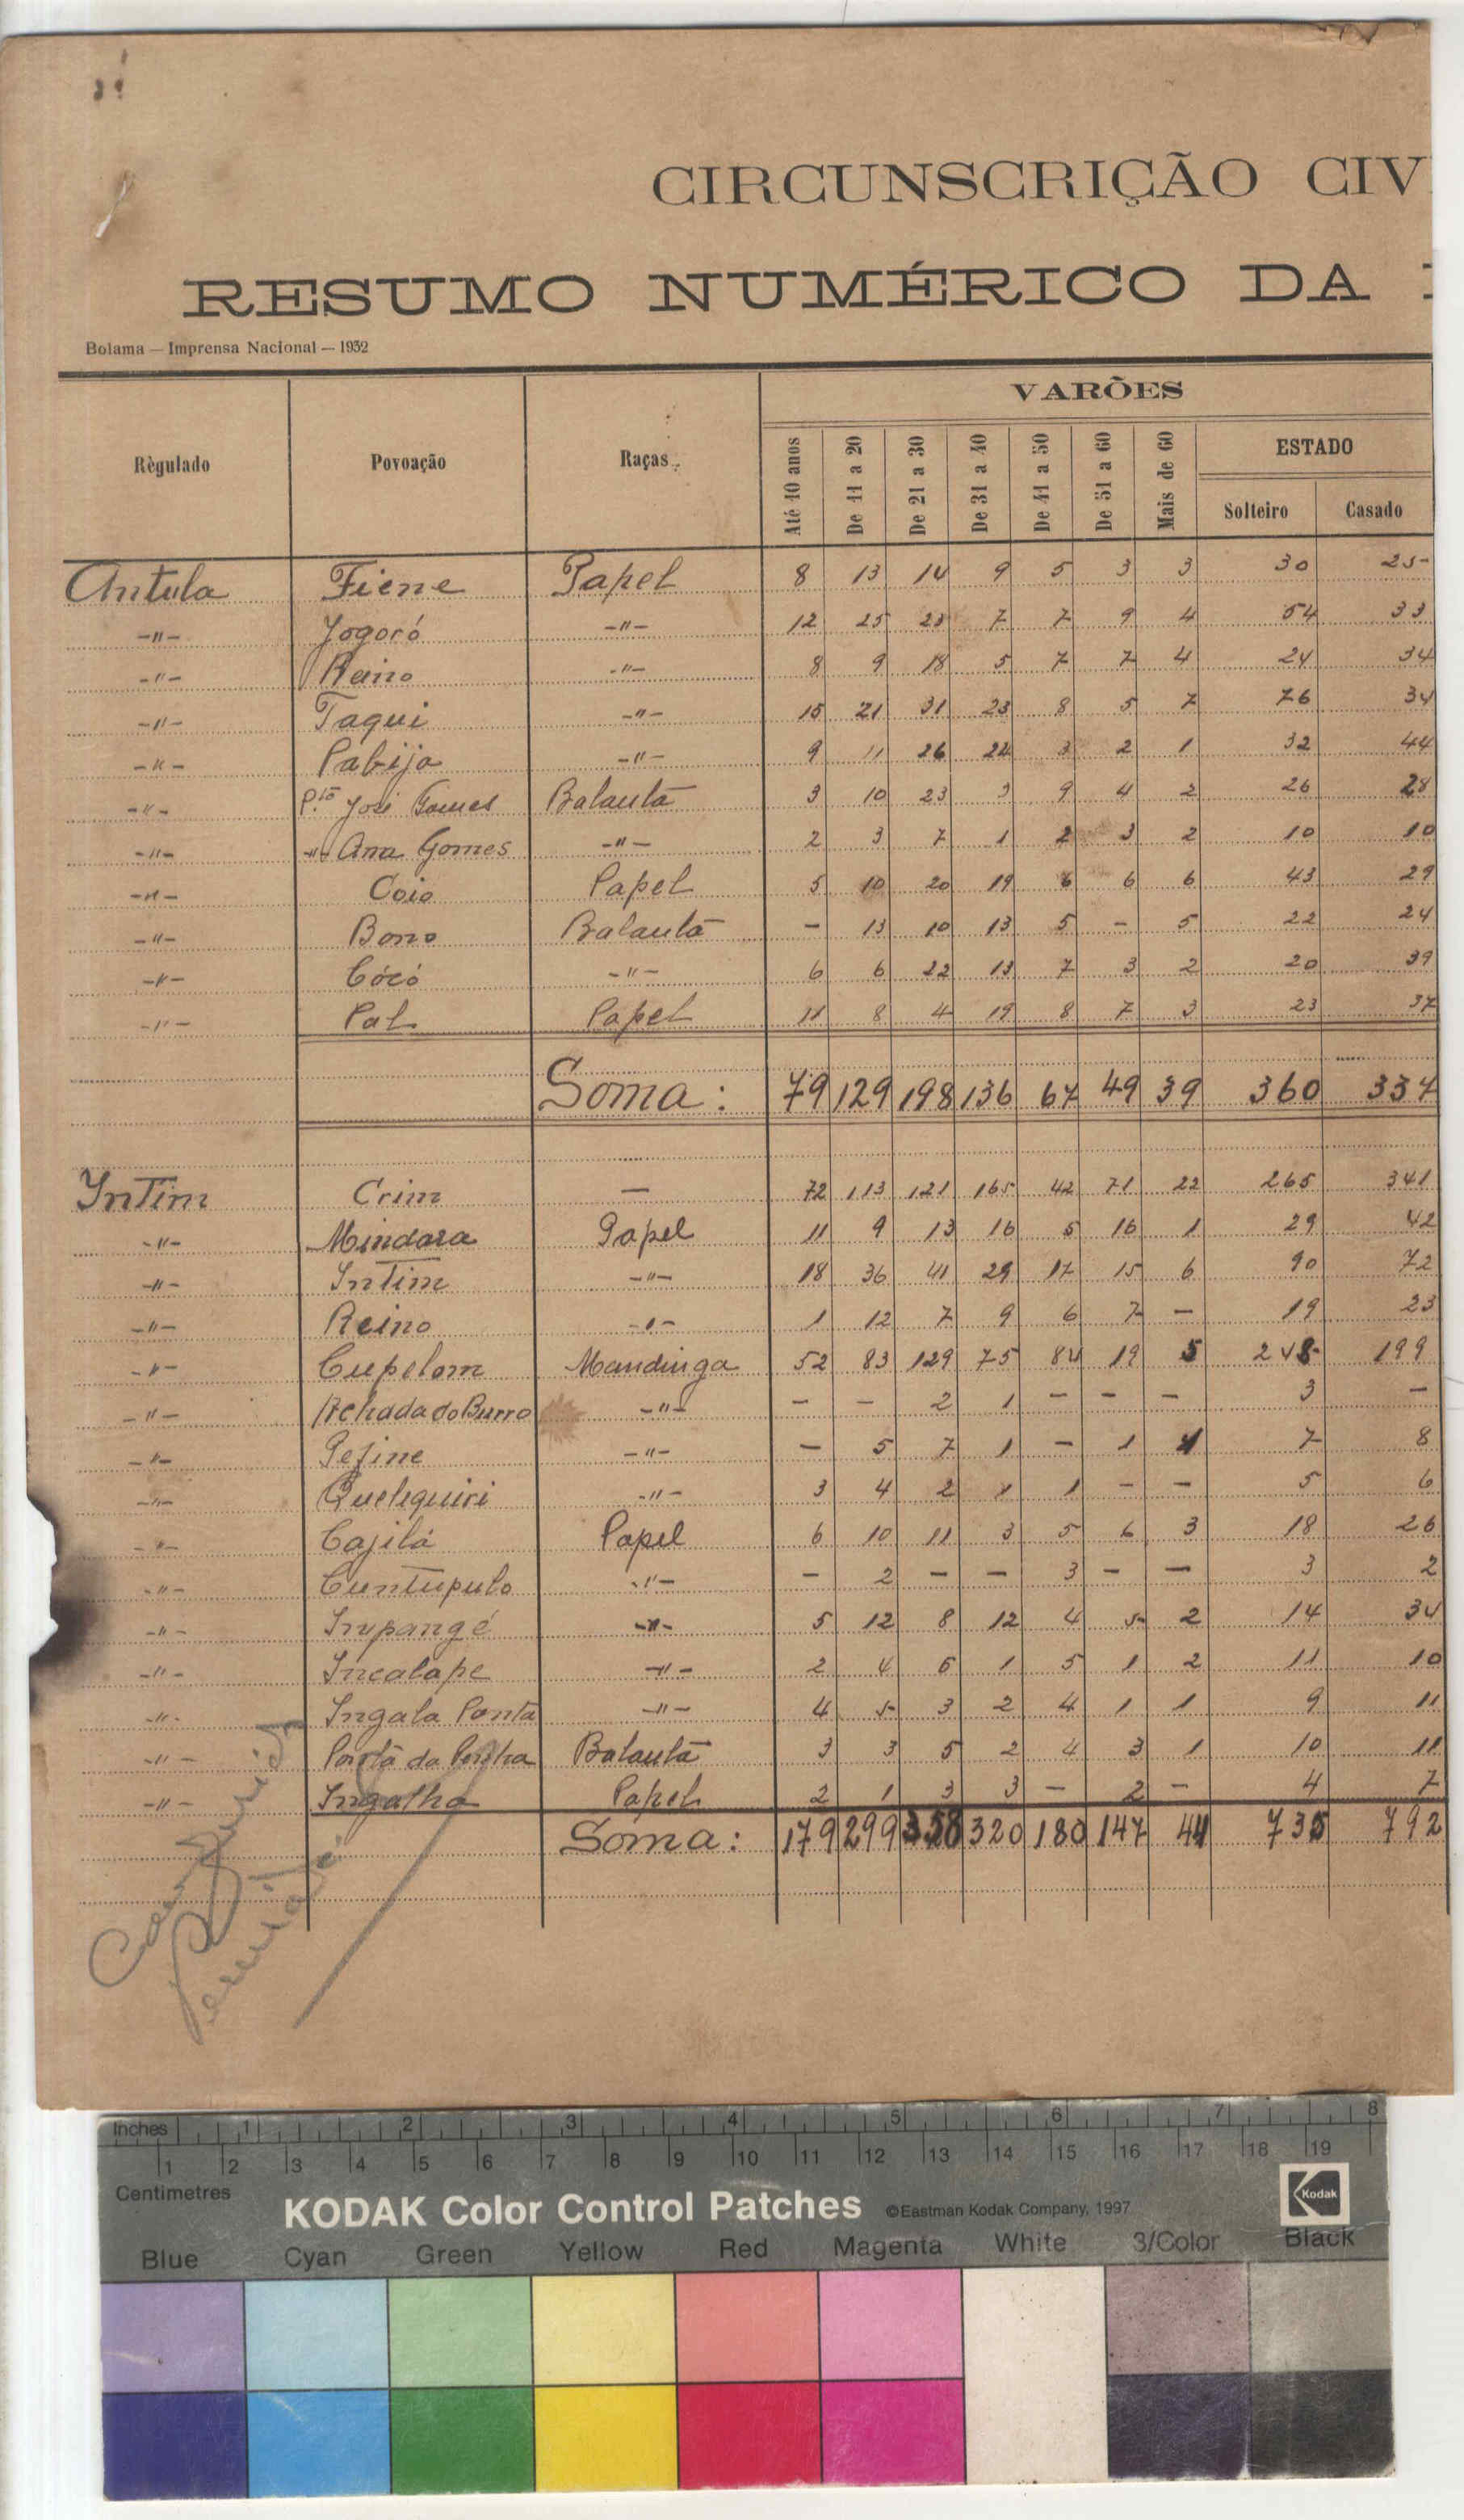 CIRCUNSCRIÇÃO CIV
RESUMO NUMÉRICO DA
Bolama — Imprensa Nacional — 1932
Règulado Povoação Raças VARÕES
Até 10 anos De 11 a 20 De 21 a 30 De 31 a 40 De 41 a 50 De 51 a 60 Mais de 60 ESTADO
Solteiro Casado
Antula Fiene Papel 8 13 14 9 5 3 3 30 25
-"- Jogoró -"- 12 25 23 7 7 9 4 54 33
-"- Reino -"- 8 9 18 5 7 7 4 24 34
-"- Taqui -"- 15 21 31 23 8 5 7 76 34
-"- Pabijo -"- 9 11 26 24 3 2 1 32 44
-"- P.ta José Gomes Balanta 3 10 23 3 9 4 2 26 28
-"- -"- Ana Gomes -"- 2 3 7 1 2 3 2 10 10
-"- Coio Papel 5 10 20 19 6 6 6 43 29
-"- Bono Balanta — 13 10 13 5 — 5 22 24
-"- Cócó -"- 6 6 22 13 7 3 2 20 39
-"- Pal Papel 11 8 4 19 8 7 3 23 37
Soma: 79 129 198 136 67 49 39 360 337
Intim Crim — 72 113 121 165 42 71 22 265 341
-"- Mindara Papel 11 9 13 16 5 16 1 29 42
-"- Intim -"- 18 36 41 29 17 15 6 90 72
-"- Reino -"- 1 12 7 9 6 7 — 19 23
-"- Cupelom Mandinga 52 83 129 75 84 19 5 248 199
-"- Achada do Burro -"- — — 2 1 — — — 3 —
-"- Pefine -"- — 5 7 1 — 1 1 7 8
-"- Quelequiri -"- 3 4 2 1 1 — — 5 6
-"- Cajilá Papel 6 10 11 3 5 6 3 18 26
-"- Cuntupulo -"- — 2 — — 3 — — 3 2
-"- Inpangé -"- 5 12 8 12 4 5 2 14 34
-"- Incalape -"- 2 4 6 1 5 1 2 11 10
-"- Ingala Ponta -"- 4 5 3 2 4 1 1 9 11
-"- Ponta da Penha Balanta 3 3 5 2 4 3 1 10 11
-"- Ingalha Papel 2 1 3 3 — 2 — 4 7
Soma: 179 299 358 320 180 147 44 735 792
Inches 1 2 3 4 5 6 7 8
1 2 3 4 5 6 7 8 9 10 11 12 13 14 15 16 17 18 19
Centimetres
KODAK Color Control Patches ©Eastman Kodak Company, 1997 Kodak
Blue Cyan Green Yellow Red Magenta White 3/Color Black